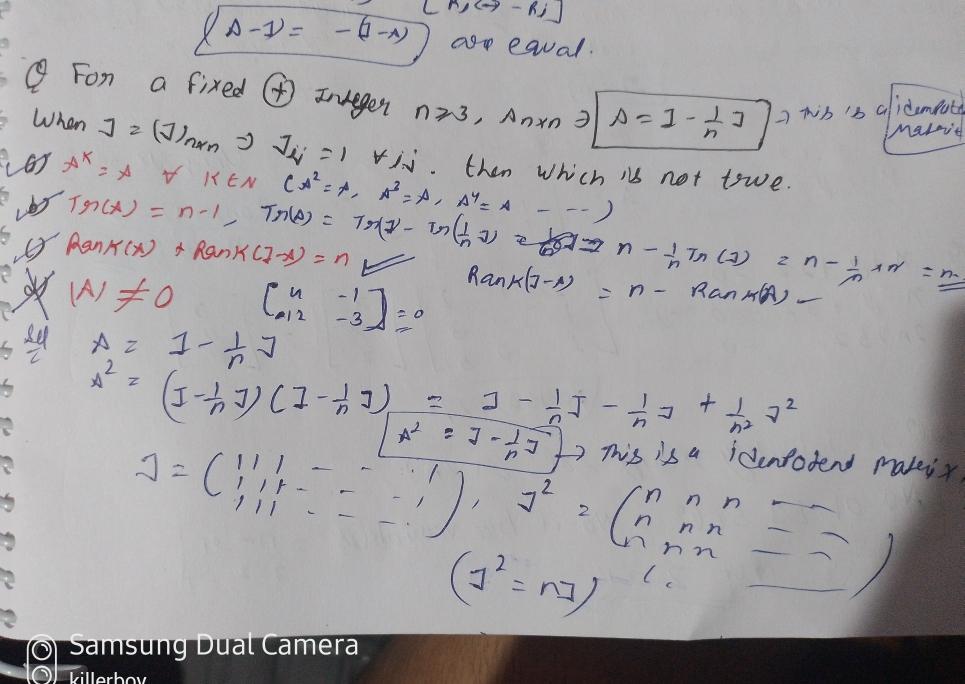 [Rj ↔ -Rj]
(A-I) = -(I-A) are equal.
Q For a fixed ⊕ Integer n≥3, Anxn ∋ A = I - 1/n J → this is a idempote Matrix
When J = (J)nxn ⇒ Jij = 1 ∀ ij. then which is not true.
a) A^K = A ∀ K∈N (A²=A, A³=A, A⁴=A - - - -)
b) Tr(A) = n-1, Tr(A) = Tr(I) - Tr(1/n J) = n - 1/n Tr(J) = n - 1/n × n =
c) Rank(A) + Rank(I-A) = n ✓ Rank(I-A) = n - Rank(A)
d) |A| ≠ 0 [4 -1
12 -3] = 0
Sol A = I - 1/n J
A² = (I - 1/n J) (I - 1/n J) = I - 1/n J - 1/n J + 1/n² J²
A² = I - 1/n J → This is a idenpotend matrix.
J = (1 1 1 - - - 1
1 1 1 - - - 1
1 1 1 - - - 1), J² = (n n n
n n n
n n n)
(J² = nJ)
Samsung Dual Camera
killerboy